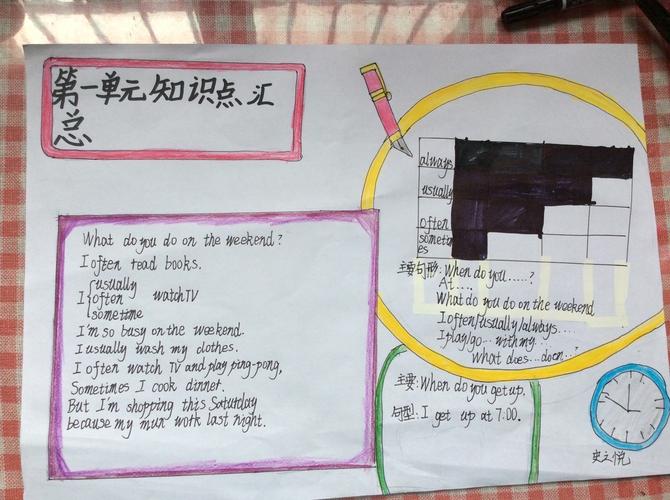 第一单元知识点汇
总
What do you do on the weekend?
I often read books.
usually
I often watch TV
sometime
I'm so busy on the weekend.
I usually wash my clothes.
I often watch TV and play ping-pong,
Sometimes I cook dinner.
But I'm shopping this Saturday
because my mun work last night.
always
usually
often
sometim
es
主要句形: When do you.....?
At....
What do you do on the weekend
I often/usually/always....
I play/go... with my...
What does...do on...?
主要: When do you get up.
句型: I get up at 7:00.
史之悦